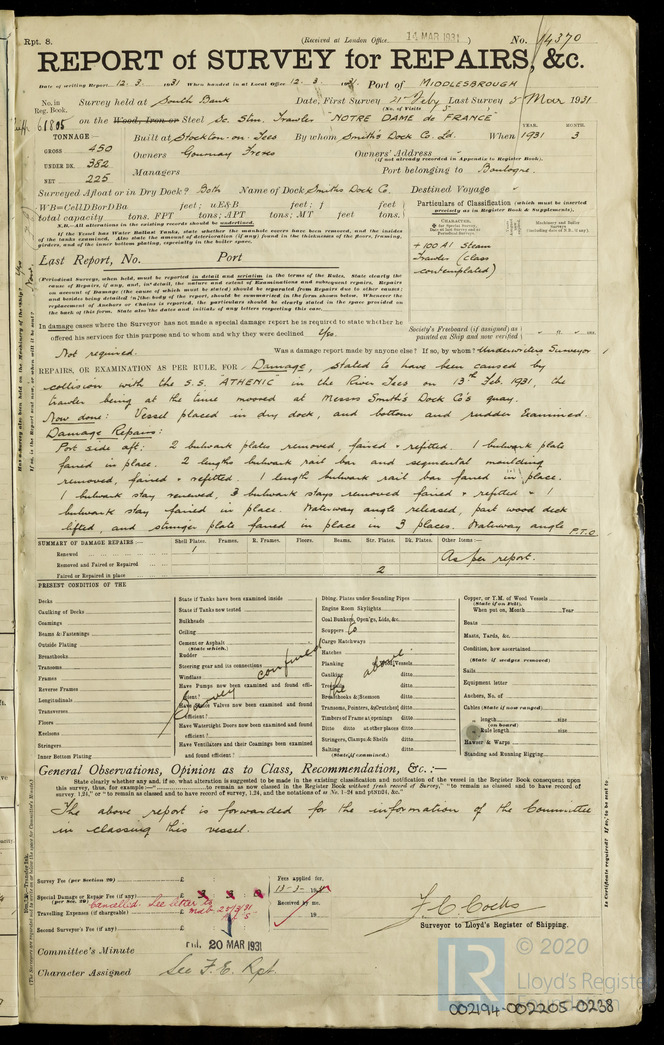 Rpt. 8.
(Received at London Office 14 MAR 1931)
No. 14370
REPORT of SURVEY for REPAIRS, &c.
Date of writing Report 12.3. 1931 When handed in at Local Office 12.3.1931 Port of MIDDLESBROUGH
No. in Reg. Book. Survey held at South Bank Date, First Survey 21st Feby Last Survey 5 Mar 1931
(No. of Visits 5
61805 on the Wood, Iron or Steel Sc. Stm. Trawler "NOTRE DAME de FRANCE"
TONNAGE—
GROSS 450
UNDER DK. 382
NET 225
Built at Stockton-on-Tees By whom Smith's Dock Co. Ld. When YEAR. 1931 MONTH. 3
Owners Gournay Freres Owners' Address
(if not already recorded in Appendix to Register Book).
Managers Port belonging to Boulogne.
Surveyed Afloat or in Dry Dock? Both Name of Dock Smiths Dock Co. Destined Voyage
WB=CellDBorDBa feet; uE&B feet; f feet
total capacity tons. FPT tons; APT tons; MT feet tons.
N.B.—All alterations in the existing records should be underlined.
If the Vessel has Water Ballast Tanks, state whether the manhole covers were removed, and the insides
of the tanks examined. Also state the amount of deterioration (if any) found in the thicknesses of the floors, framing,
girders, and of the inner bottom plating, especially in the boiler space.
Particulars of Classification (which must be inserted
precisely as in Register Book & Supplements).
CHARACTER.
Machinery and Boiler
Surveys
+ 100 A1 Steam
Trawler (class
contemplated)
Last Report, No. Port
(Periodical Surveys, when held, must be reported in detail and seriatim in the terms of the Rules. State clearly the
cause of Repairs, if any, and, in detail, the nature and extent of Examinations and subsequent repairs. Repairs
on account of Damage (the cause of which must be stated) should be separated from Repairs due to other causes;
and besides being detailed in the body of the report, should be summarized in the form shown below. Whenever the
replacement of Anchors or Chains is reported, the particulars should be clearly stated in the space provided on
the back of this form. State also the dates and initials of any letters respecting this case.
In damage cases where the Surveyor has not made a special damage report he is required to state whether he
offered his services for this purpose and to whom and why they were declined Yes.
Society's Freeboard (if assigned) as
painted on Ship and now verified
Not required. Was a damage report made by anyone else? If so, by whom? Underwriters Surveyor
REPAIRS, OR EXAMINATION AS PER RULE, FOR Damage, stated to have been caused by
collision with the S.S. ATHENIC in the River Tees on 13th Feb. 1931, the
trawler being at the time moored at Messrs Smith's Dock Co's quay.
Now done: Vessel placed in dry dock, and bottom and rudder examined.
Damage Repairs:
Port side aft: 2 bulwark plates removed, faired & refitted. 1 bulwark plate
faired in place. 2 lengths bulwark rail bar and segmental moulding
removed, faired & refitted. 1 length bulwark rail bar faired in place.
1 bulwark stay renewed, 3 bulwark stays removed faired & refitted & 1
bulwark stay faired in place. Waterway angle released, part wood deck
lifted, and stringer plate faired in place in 3 places. Waterway angle P.T.O
SUMMARY OF DAMAGE REPAIRS :— Shell Plates. Frames. R. Frames. Floors. Beams. Str. Plates. Dk. Plates. Other Items :—
Renewed 1
Removed and Faired or Repaired As per report.
Faired or Repaired in place 2
PRESENT CONDITION OF THE
Decks
Caulking of Decks
Coamings
Beams & Fastenings
Outside Plating
Breasthooks
Transoms
Frames
Reverse Frames
Longitudinals
Transverses
Floors
Keelsons
Stringers
Inner Bottom Plating
State if Tanks have been examined inside
State if Tanks now tested
Bulkheads
Ceiling
Cement or Asphalt
(State which.)
Rudder
Steering gear and its connections
Windlass
Have Pumps now been examined and found effi-
cient?
Have Sluice Valves now been examined and found
efficient?
Have Watertight Doors now been examined and found
efficient?
Have Ventilators and their Coamings been examined
and found efficient?
Dblng. Plates under Sounding Pipes
Engine Room Skylights
Coal Bunkers, Open'gs, Lids, &c.
Scuppers
Cargo Hatchways
Hatches
Planking
Caulking ditto
Treenails ditto
Breasthooks & Stemson ditto
Transoms, Pointers, & Crutches ditto
Timbers of Frame at openings ditto
Ditto ditto at other places ditto
Stringers, Clamps & Shelfs ditto
Salting ditto
(State if examined.)
Copper, or Y.M. of Wood Vessels
(State if on Felt).
When put on, Month Year
Boats
Masts, Yards, &c.
Condition, how ascertained
(State if wedges removed)
Sails
Equipment letter
Anchors, No. of
Cables (State if now ranged)
„ length size
(on board)
„ Rule length size
Hawser & Warps
Standing and Running Rigging
Survey confined
to
above
General Observations, Opinion as to Class, Recommendation, &c. :—
State clearly whether any and, if so, what alteration is suggested to be made in the existing classification and notification of the vessel in the Register Book consequent upon
this survey, thus, for example :—" to remain as now classed in the Register Book without fresh record of Survey," "to remain classed and to have record of
survey 1,24," or "to remain as classed and to have record of survey, 1,24, and the notations of
The above report is forwarded for the information of the Committee
in classing this vessel.
Survey Fee (per Section 29) £
Special Damage or Repair Fee (if any) £
(per Sec. 29)
Cancelled See letter to
Mdb 20/3/31
Travelling Expenses (if chargeable) £
Second Surveyor's Fee (if any) £
Fees applied for,
13-3-1931
Received by me,
19
F. C. Cocks
Surveyor to Lloyd's Register of Shipping.
Committee's Minute FRI. 20 MAR 1931
Character Assigned See F.E. Rpt.
© 2020
LR
Lloyd's Register
Foundation
002194-002205-0238